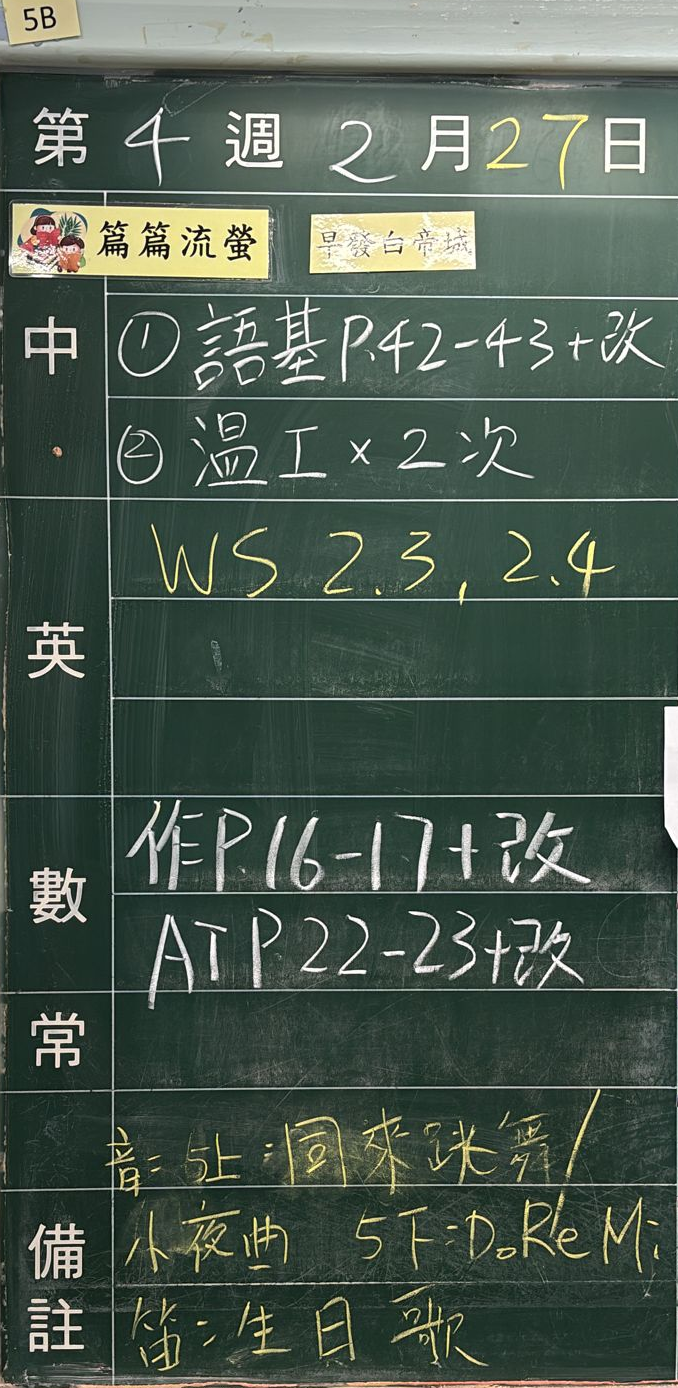 5B
第 4 週 2 月 27 日
篇篇流螢 早發白帝城
中 ① 語基 P.42-43+改
② 溫工 × 2 次
英 WS 2.3, 2.4
數 作P.16-17+改
AT P.22-23+改
常
音: 5上:同來跳舞/
備註 小夜曲 5下:Do Re Mi
笛:生日歌